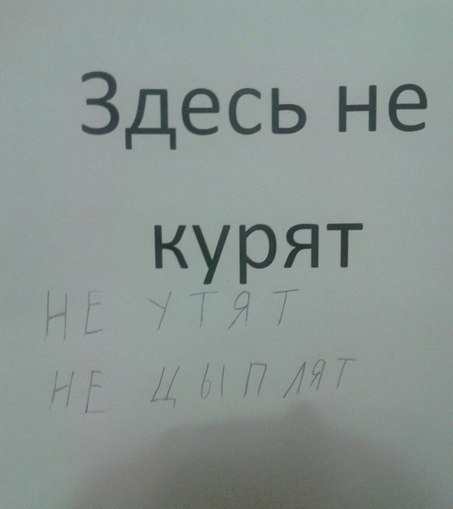 Здесь не
курят
НЕ УТЯТ
НЕ ЦЫПЛЯТ